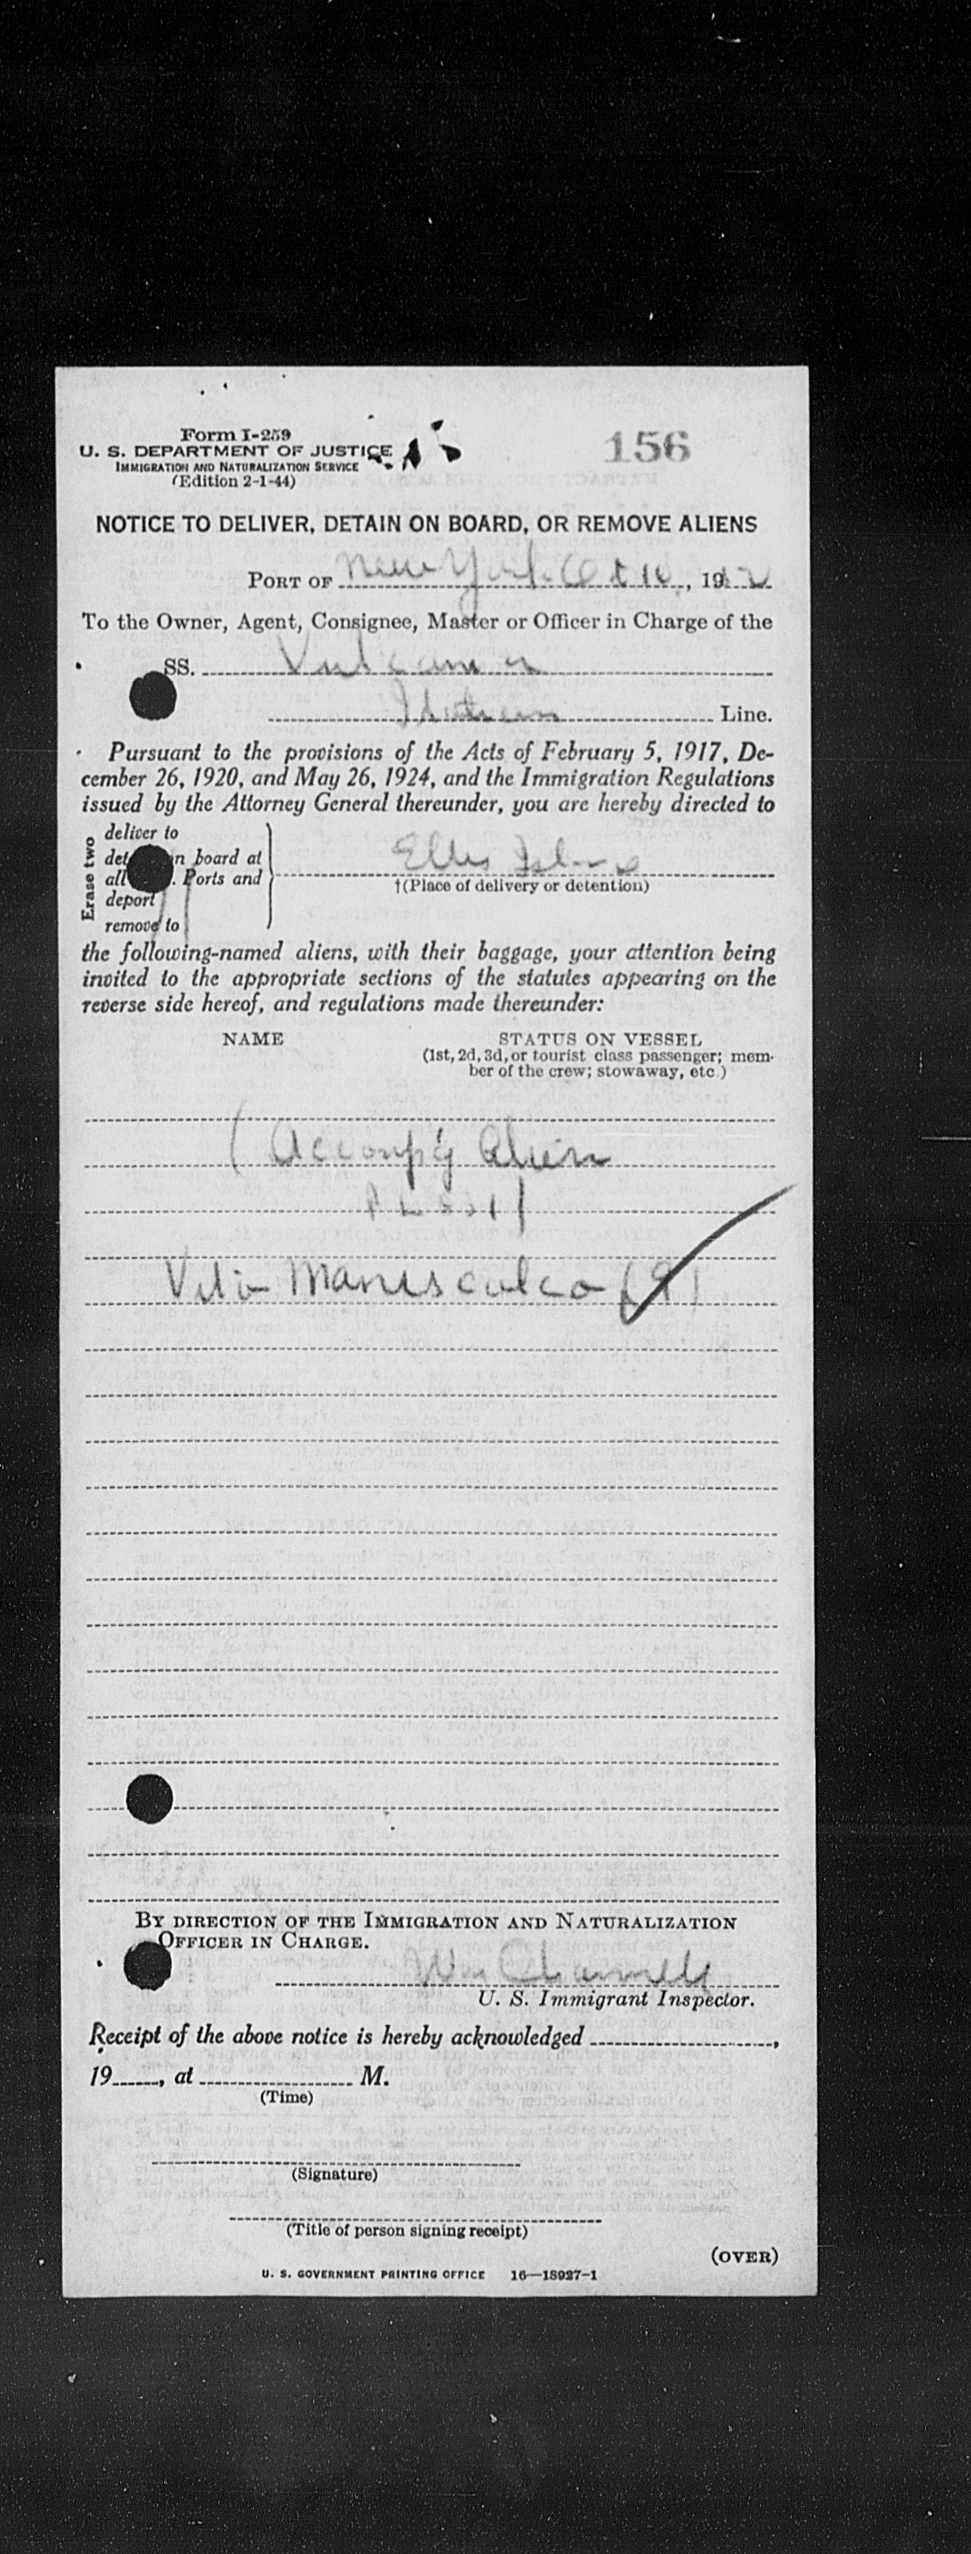 Form I-259
U. S. DEPARTMENT OF JUSTICE
IMMIGRATION AND NATURALIZATION SERVICE
(Edition 2-1-44)
156
NOTICE TO DELIVER, DETAIN ON BOARD, OR REMOVE ALIENS
PORT OF New York Oct 10, 19
To the Owner, Agent, Consignee, Master or Officer in Charge of the
SS. Vulcania
Italian Line.
Pursuant to the provisions of the Acts of February 5, 1917, De-
cember 26, 1920, and May 26, 1924, and the Immigration Regulations
issued by the Attorney General thereunder, you are hereby directed to
Erase two
deliver to
n board at
all Ports and
deport
remove to
Ellis Island
†(Place of delivery or detention)
the following-named aliens, with their baggage, your attention being
invited to the appropriate sections of the statutes appearing on the
reverse side hereof, and regulations made thereunder:
NAME
STATUS ON VESSEL
(1st, 2d, 3d, or tourist class passenger; mem-
ber of the crew; stowaway, etc.)
( Accomp'g Alien
Vito Maniscalco (9)
BY DIRECTION OF THE IMMIGRATION AND NATURALIZATION
OFFICER IN CHARGE.
Wm
U. S. Immigrant Inspector.
Receipt of the above notice is hereby acknowledged ,
19 , at M.
(Time)
(Signature)
(Title of person signing receipt)
(OVER)
U. S. GOVERNMENT PRINTING OFFICE 16—18927-1